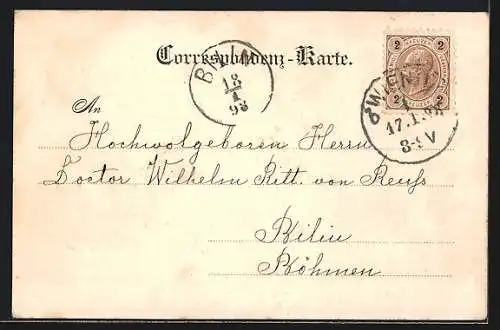 Correspondenz-Karte.
BILIN
18/1
98
2 2
2 2
WIEN
17.1.98
8-9 V
An
Hochwolgeboren Herrn
Doctor Wilhelm Ritt. von Reuß
Bilin
Böhmen